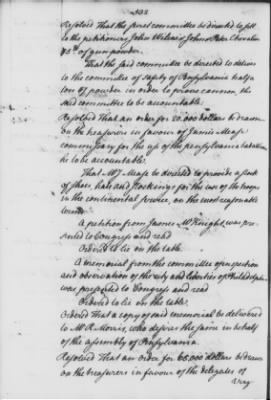 Resolved That the secret committee be directed to sell
to the petitioners John Wilcocks & Peter Chevalier
75 lb of gun powder.
That the said committee be directed to deliver
to the committee of safety of Pensylvania half a
ton of powder in order to prove cannon, the
said committee to be accountable.
Resolved That an order for 20.000 dollars be drawn
on the treasurers in favour of James Mease
commissary for the use of the pensylvania battalion
he to be accountable.
That Mr J Mease be directed to provide a stock
of shoes, hats and stockings for the use of the troops
in the continental service, on the most reasonable
terms.
A petition from James McKnight was pre-
sented to Congress and read
Ordered to lie on the table.
A memorial from the committee of inspection
and observation of the city and liberties of Philadelphia
was presented to Congress and read
Ordered to lie on the table.
Ordered That a copy of said memorial be delivered
to Mr R. Morris, who desires the same in behalf
of the assembly of Pensylvania.
Resolved That an order for 65.000 dollars be drawn
on the treasurers in favour of the delegates of